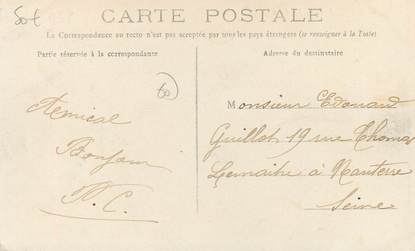 50€
CARTE POSTALE
La Correspondance au recto n'est pas acceptée par tous les pays étrangers (se renseigner à la Poste)
Partie réservée à la correspondance
Adresse du destinataire
60
Amical
Bonjour
Monsieur Edouard
Guillot 19 rue Thomas
Lemaitre à Nanterre
Seine